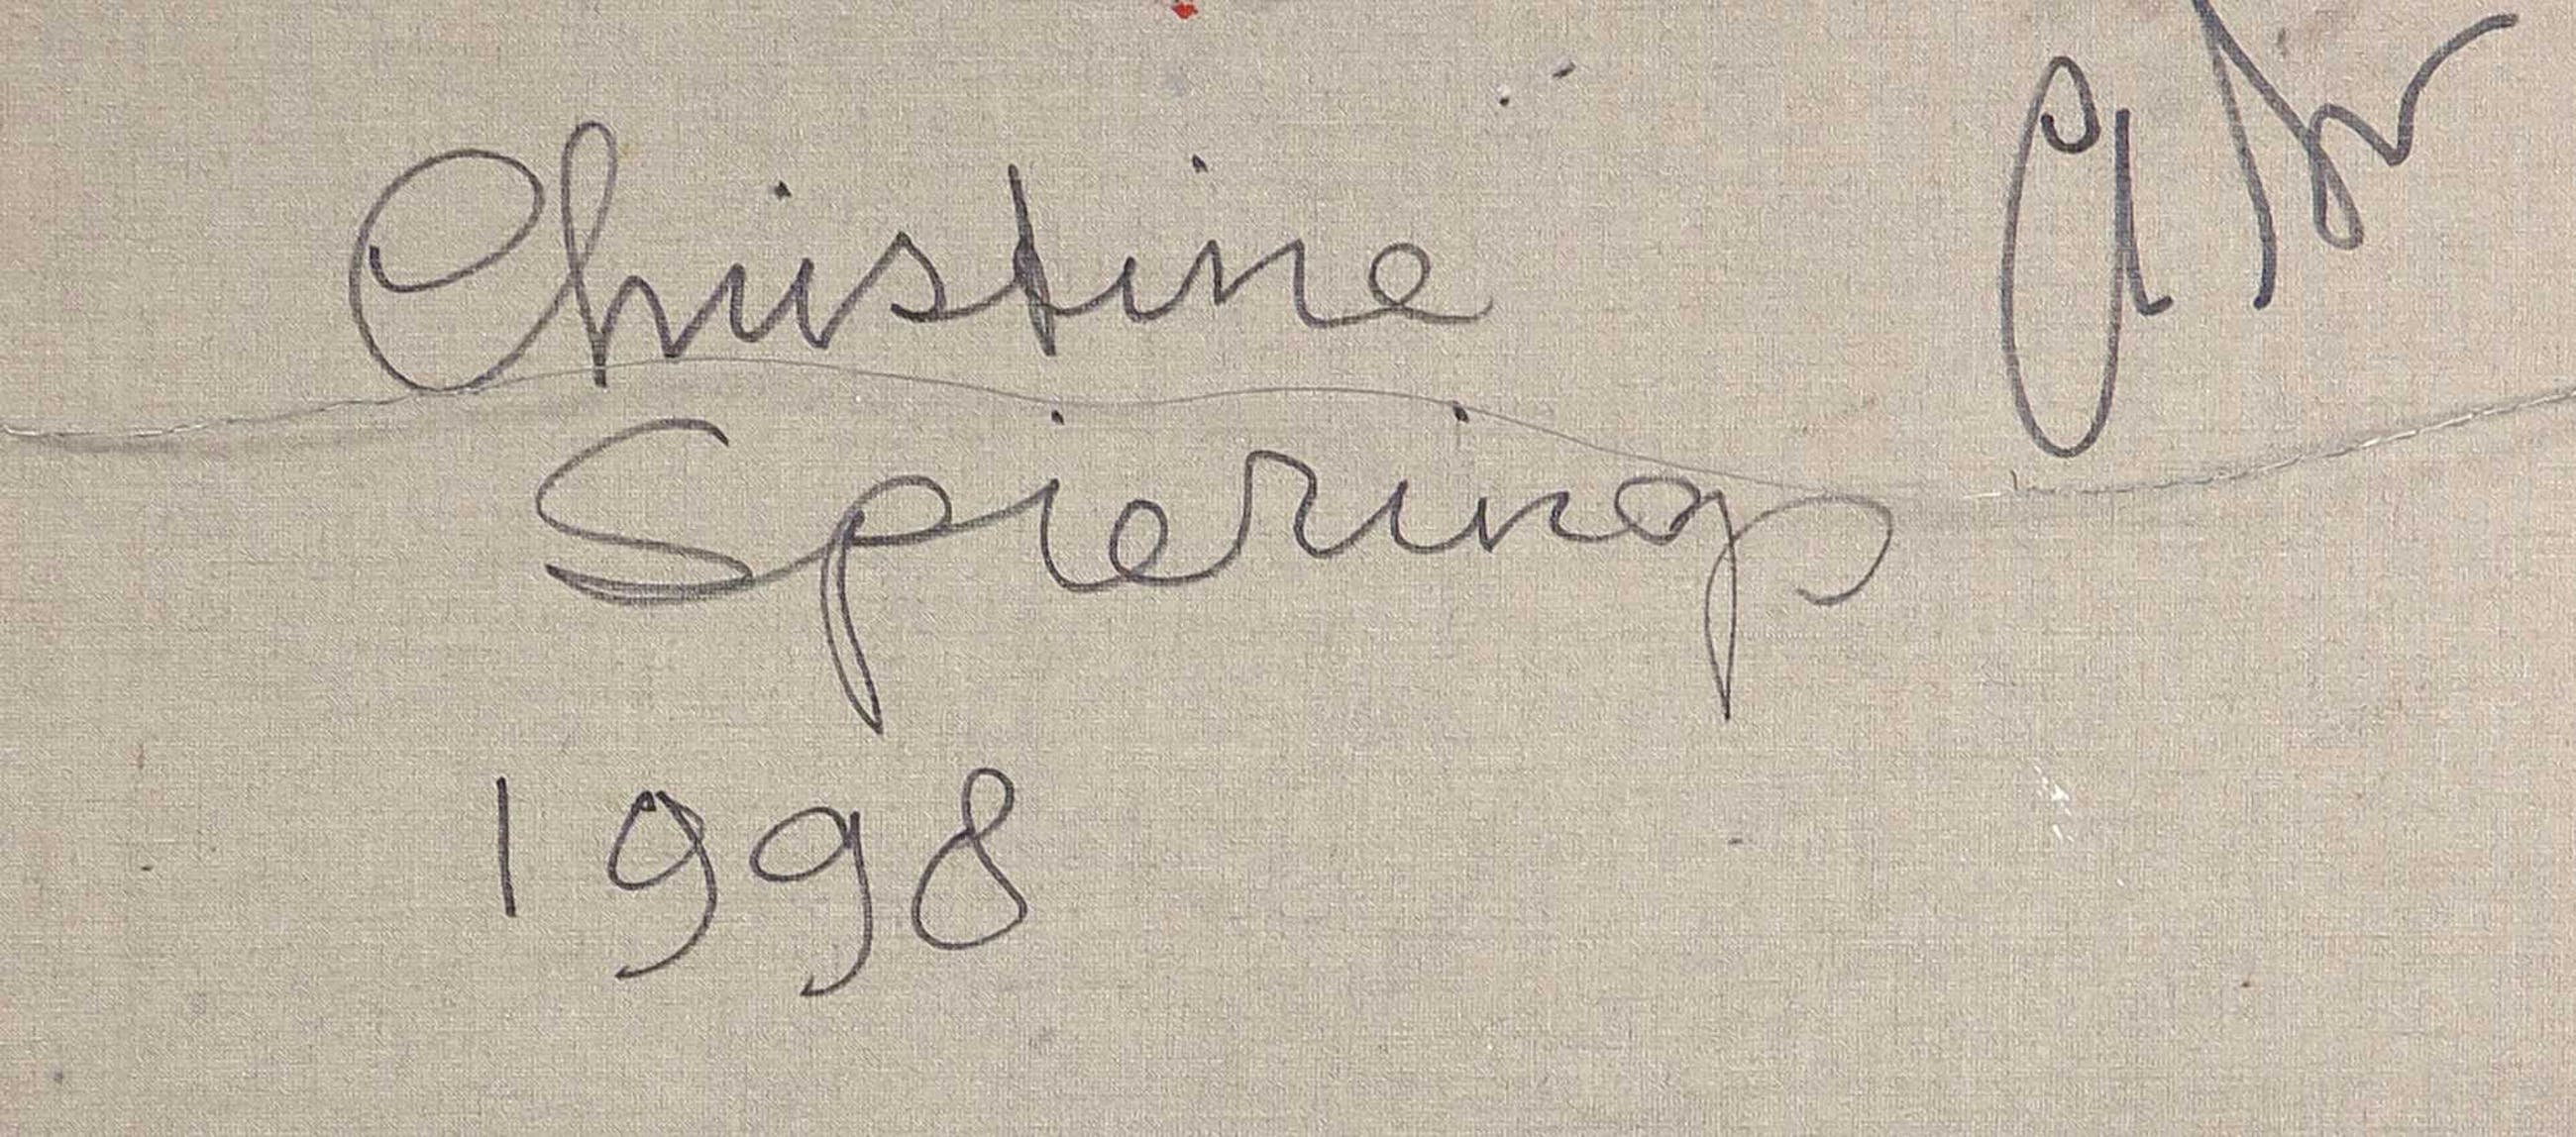 Christine
Spierings
1998